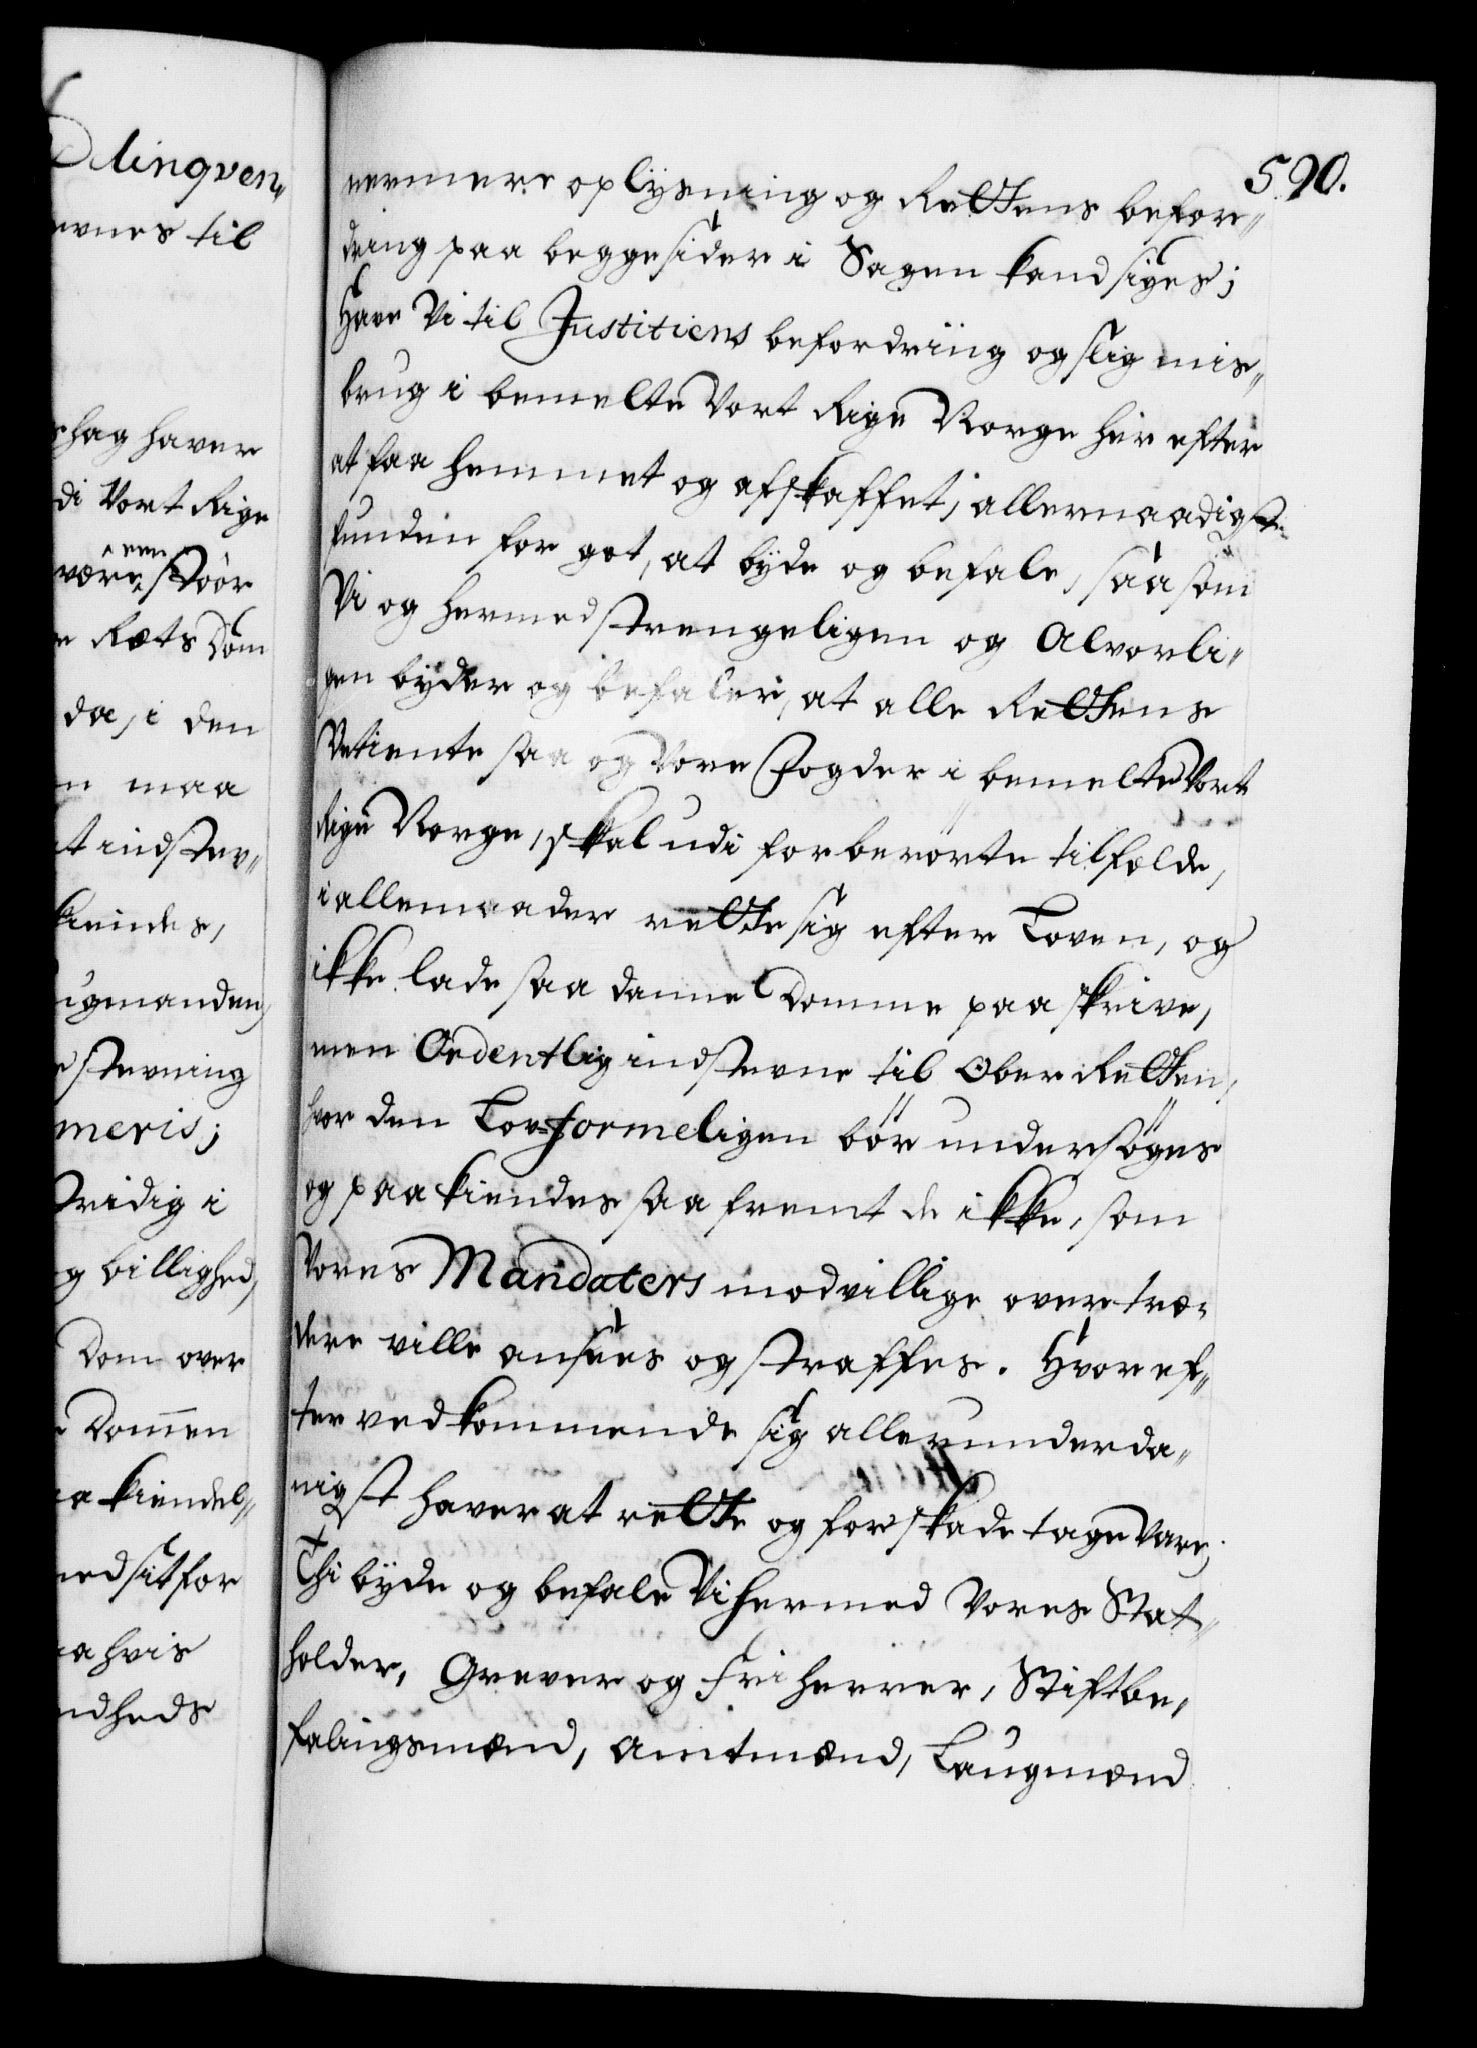 Delinqven„
evnes til
shag haver
di Vort Rige
een
være stoór
e Ræts Dom
da, i den
n maa
t indstev„
kiendes,
ugmanden,
e stevning
meris;
tridig i
g billighed,
Dom over
e Domen
a kiendel„
ned sit for
a hvis
ndheds
590.
nermere oplysning og Rettens befor„
dring paa beggesider i Sagen kand siges;
Have Vi til Justitiens befordring og slig mis„
brug i bemelte Vort Rige Norge her efter
at faa hemmet og afskaffet, allernaadigst
funden for got, at byde og befale, saasom
Vi og hermed strengeligen og Alvorli„
gen byder og befaler, at alle Rettens
Betiente saa og Vore Fogder i bemelte Vort
Rige Norge, skal udi forberørte tilfælde,
i allemaader rette sig efter Loven, og
ikke lade saa danne Domme paaskrive,
men Ordentlig indstevne til Ober Retten,
hvor den Lov-formeligen bør undersøges
og paakiendes saa fremt de ikke, som
Vores Mandaters modvillige overtræ„
dere ville ansees og straffes. Hvoref„
ter vedkommende sig allerunderda„
nigst haver at rette og for skade tage Vare;
Thi byde og befale Vi hermed Vores Stat„
holder, Grever og Friherrer, Stiftbe„
falingsmænd, Amtmænd, Laugmænd